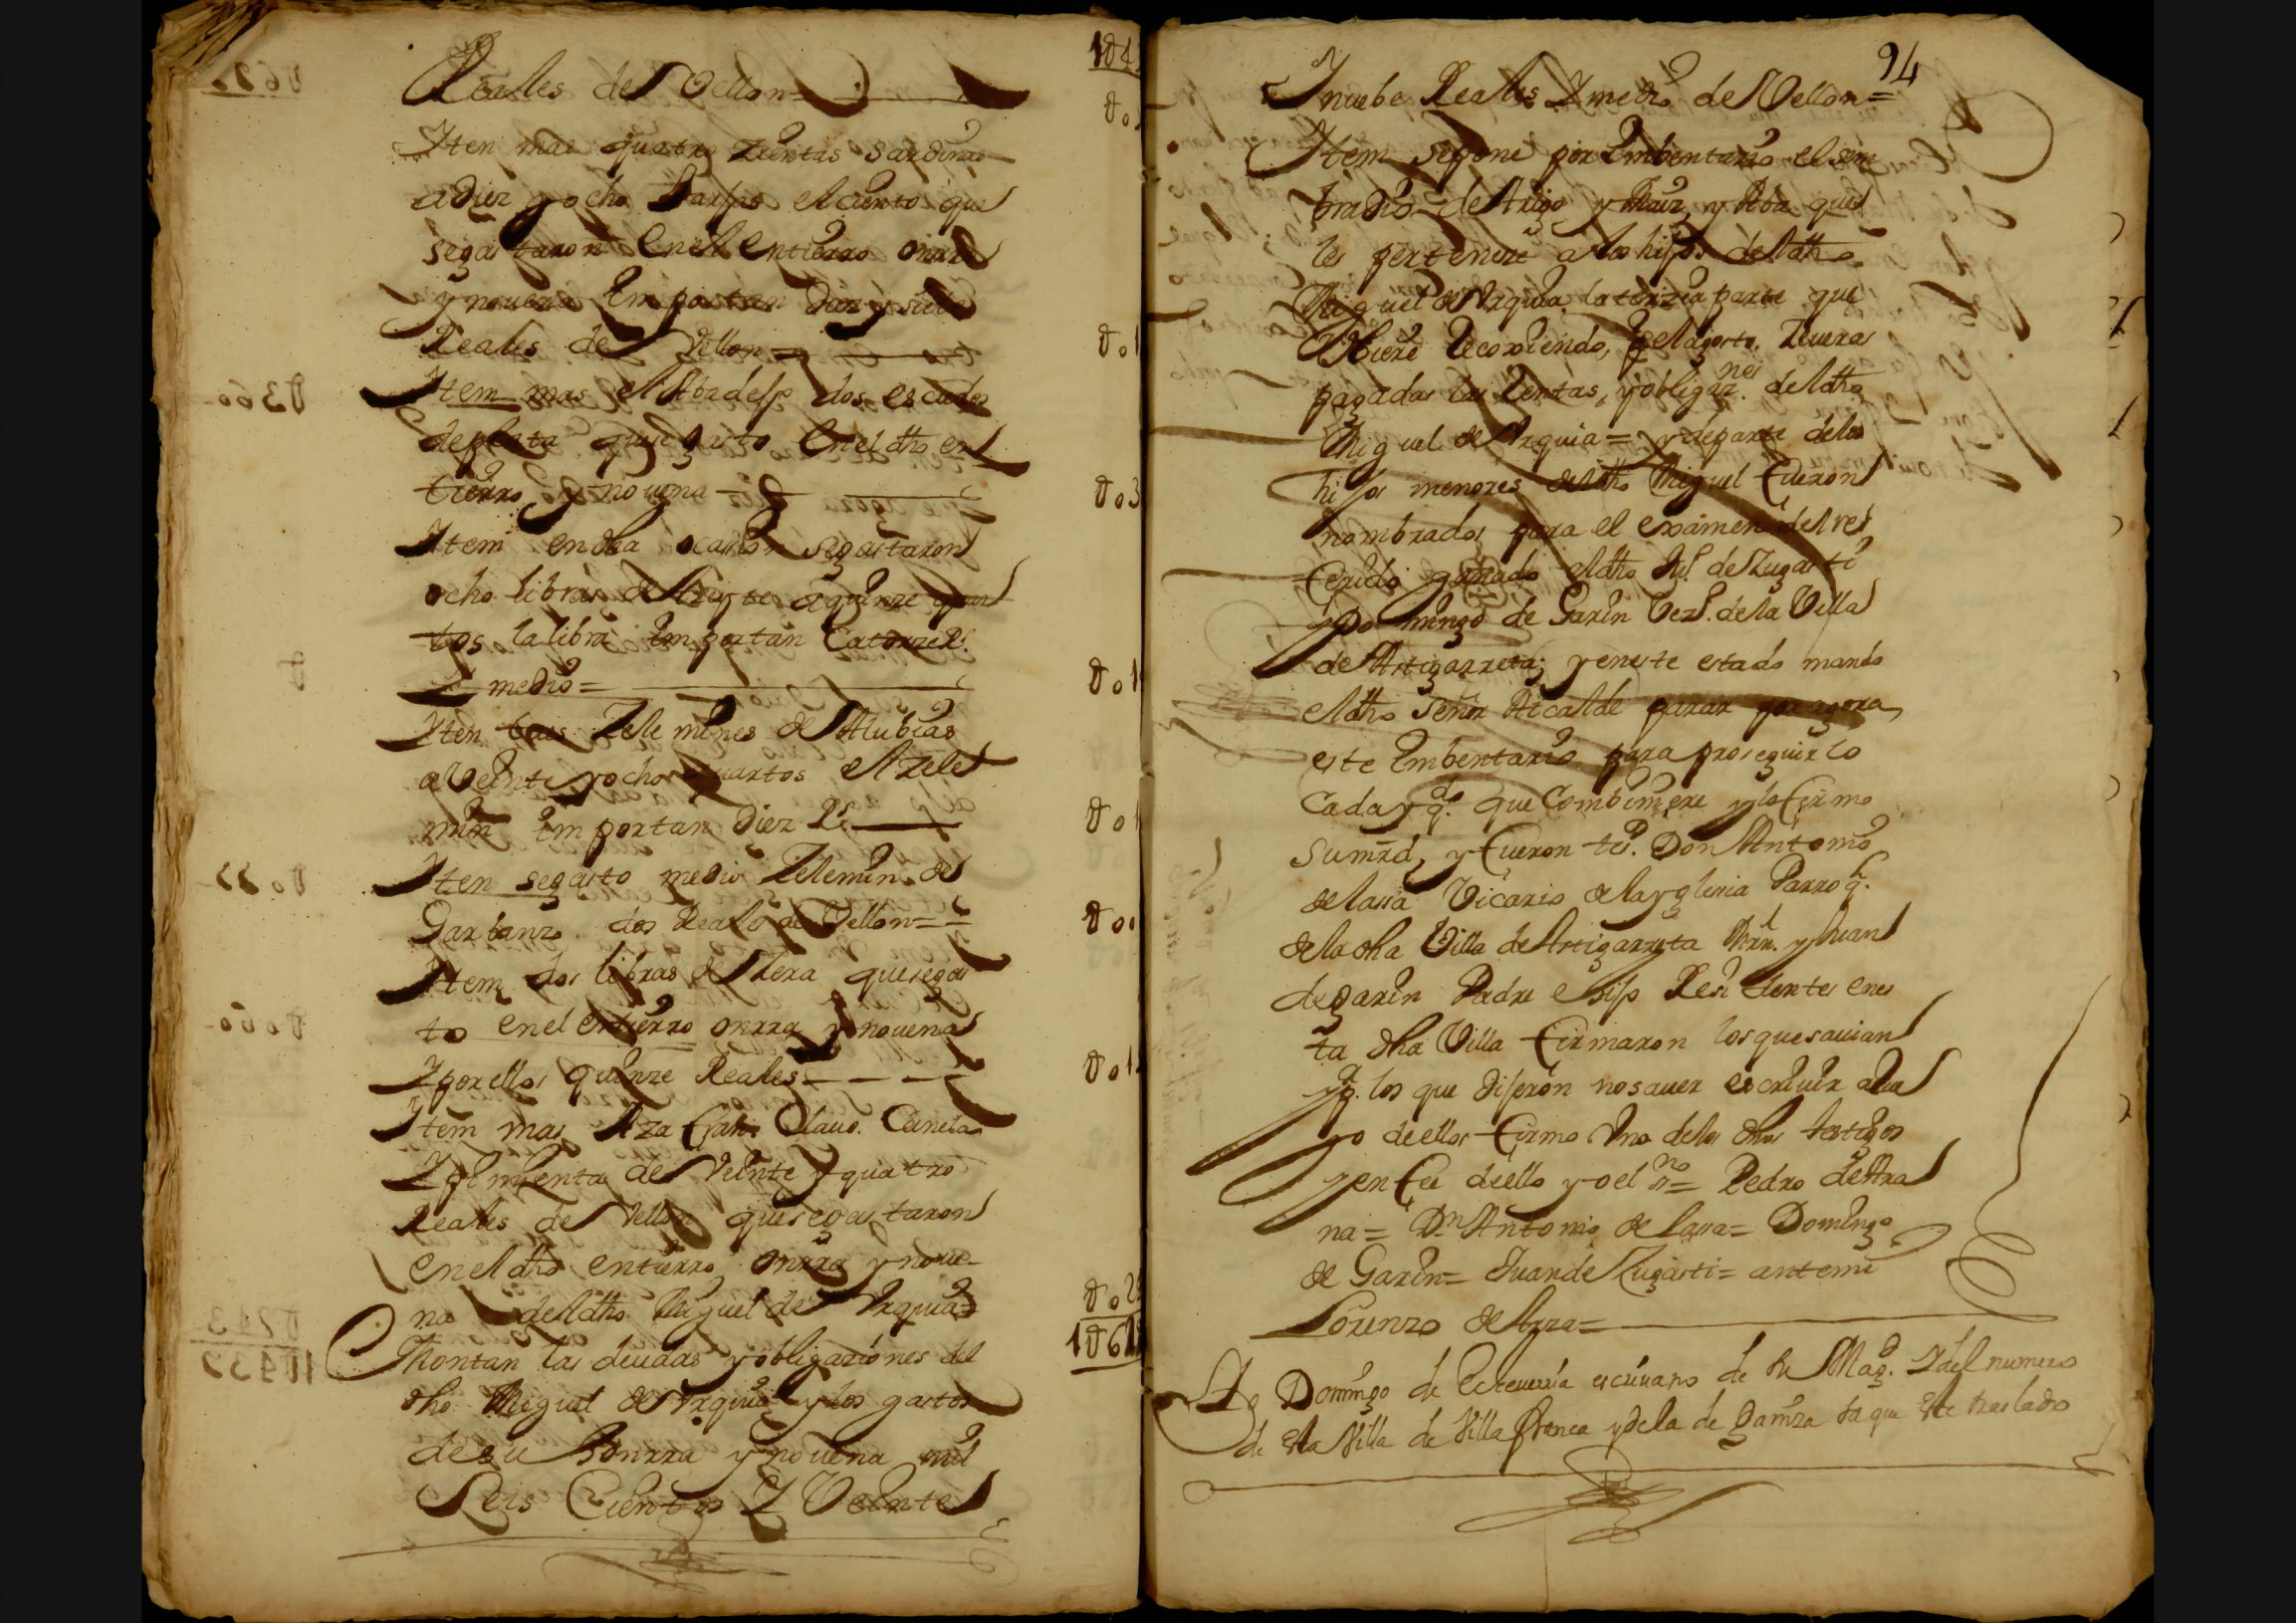 Reales de Vellon =
Iten mas quatro zientas sardinas
a diez y ocho tarjas el ciento que
se gastaron en el entierro onrra
y novena Importan diez y siete
Reales de Vellon =
Item mas el Abadejo dos escudos
de plata que se gasto en el dho en
tierro y novena
Item en dha ocasion se gastaron
ocho libras de Azeyte a quinze quar
tos la libra importan Catorze Rs.
Y medio =
Iten tres Zelemines de Alubias
a Veinte y ocho quartos el Zele
min importan Diez Rs.
Iten se gasto medio Zelemin de
Garbanzo dos Reales de Vellon =
Item dos libras de Zera que se gas
to en el entierro onrra y novena
Y por ellos quinze Reales
Item mas Aza fran Clavo. Canela
Y pimienta de Veinte y quatro
Reales de Vellon que se gastaron
en el dho entierro onrra y nove
na del dho Miguel de Vrquia =
Montan las deudas y obligaziones del
dho Miguel de Vrquia y los gastos
de su honrra y novena mil
Seis Cientos Y Veinte
94
Y nuebe Reales Y medio de Vellon =
Item se pone por Imbentario el sem
bradio de trigo y Maiz y Aba que
les pertenize a los hijos del dho
Miguel de Vrquia la terzia parte que
Vbiere Recoxiendo, el Agosto. Zeveras
pagadas las Rentas, y obligaz.nes del dho
Miguel de Vrquia = y de parte de los
hijos menores del dho Miguel fueron
nombrados para el examen del re
ferido ganado el dho Ju. de Zugasti
y Domingo de Garin Vez. de la Villa
de Astigarreta; y en este estado mando
el dho Señor Alcalde parar por agora
este Imbentario para proseguirlo
Cada y q.do que Combiniere y lo firmo
su mrd, y fueron ts. Don Antonio
de lasa Vicario de la yglesia Parroq.
de la dha Villa de Astigarreta Mrn. y Juan
de garin Padre e hijo Residentes en es
ta dha Villa firmaron los que savian
y p. los que dijeron no saver escrivir a Rue
go de ellos firmo Vno de los dhos testigos
y en fee de ello yo el ss.no = Pedro de Ara
na = Dn Antonio de lasa = Domingo
de Garin = Juan de Zugasti = ante mi
Lorenzo de Arza =
Yo Domingo de Echeverria escrivano de su Mag. Y del numero
de esta Villa de Villa franca y de la de Gainza saque este traslado